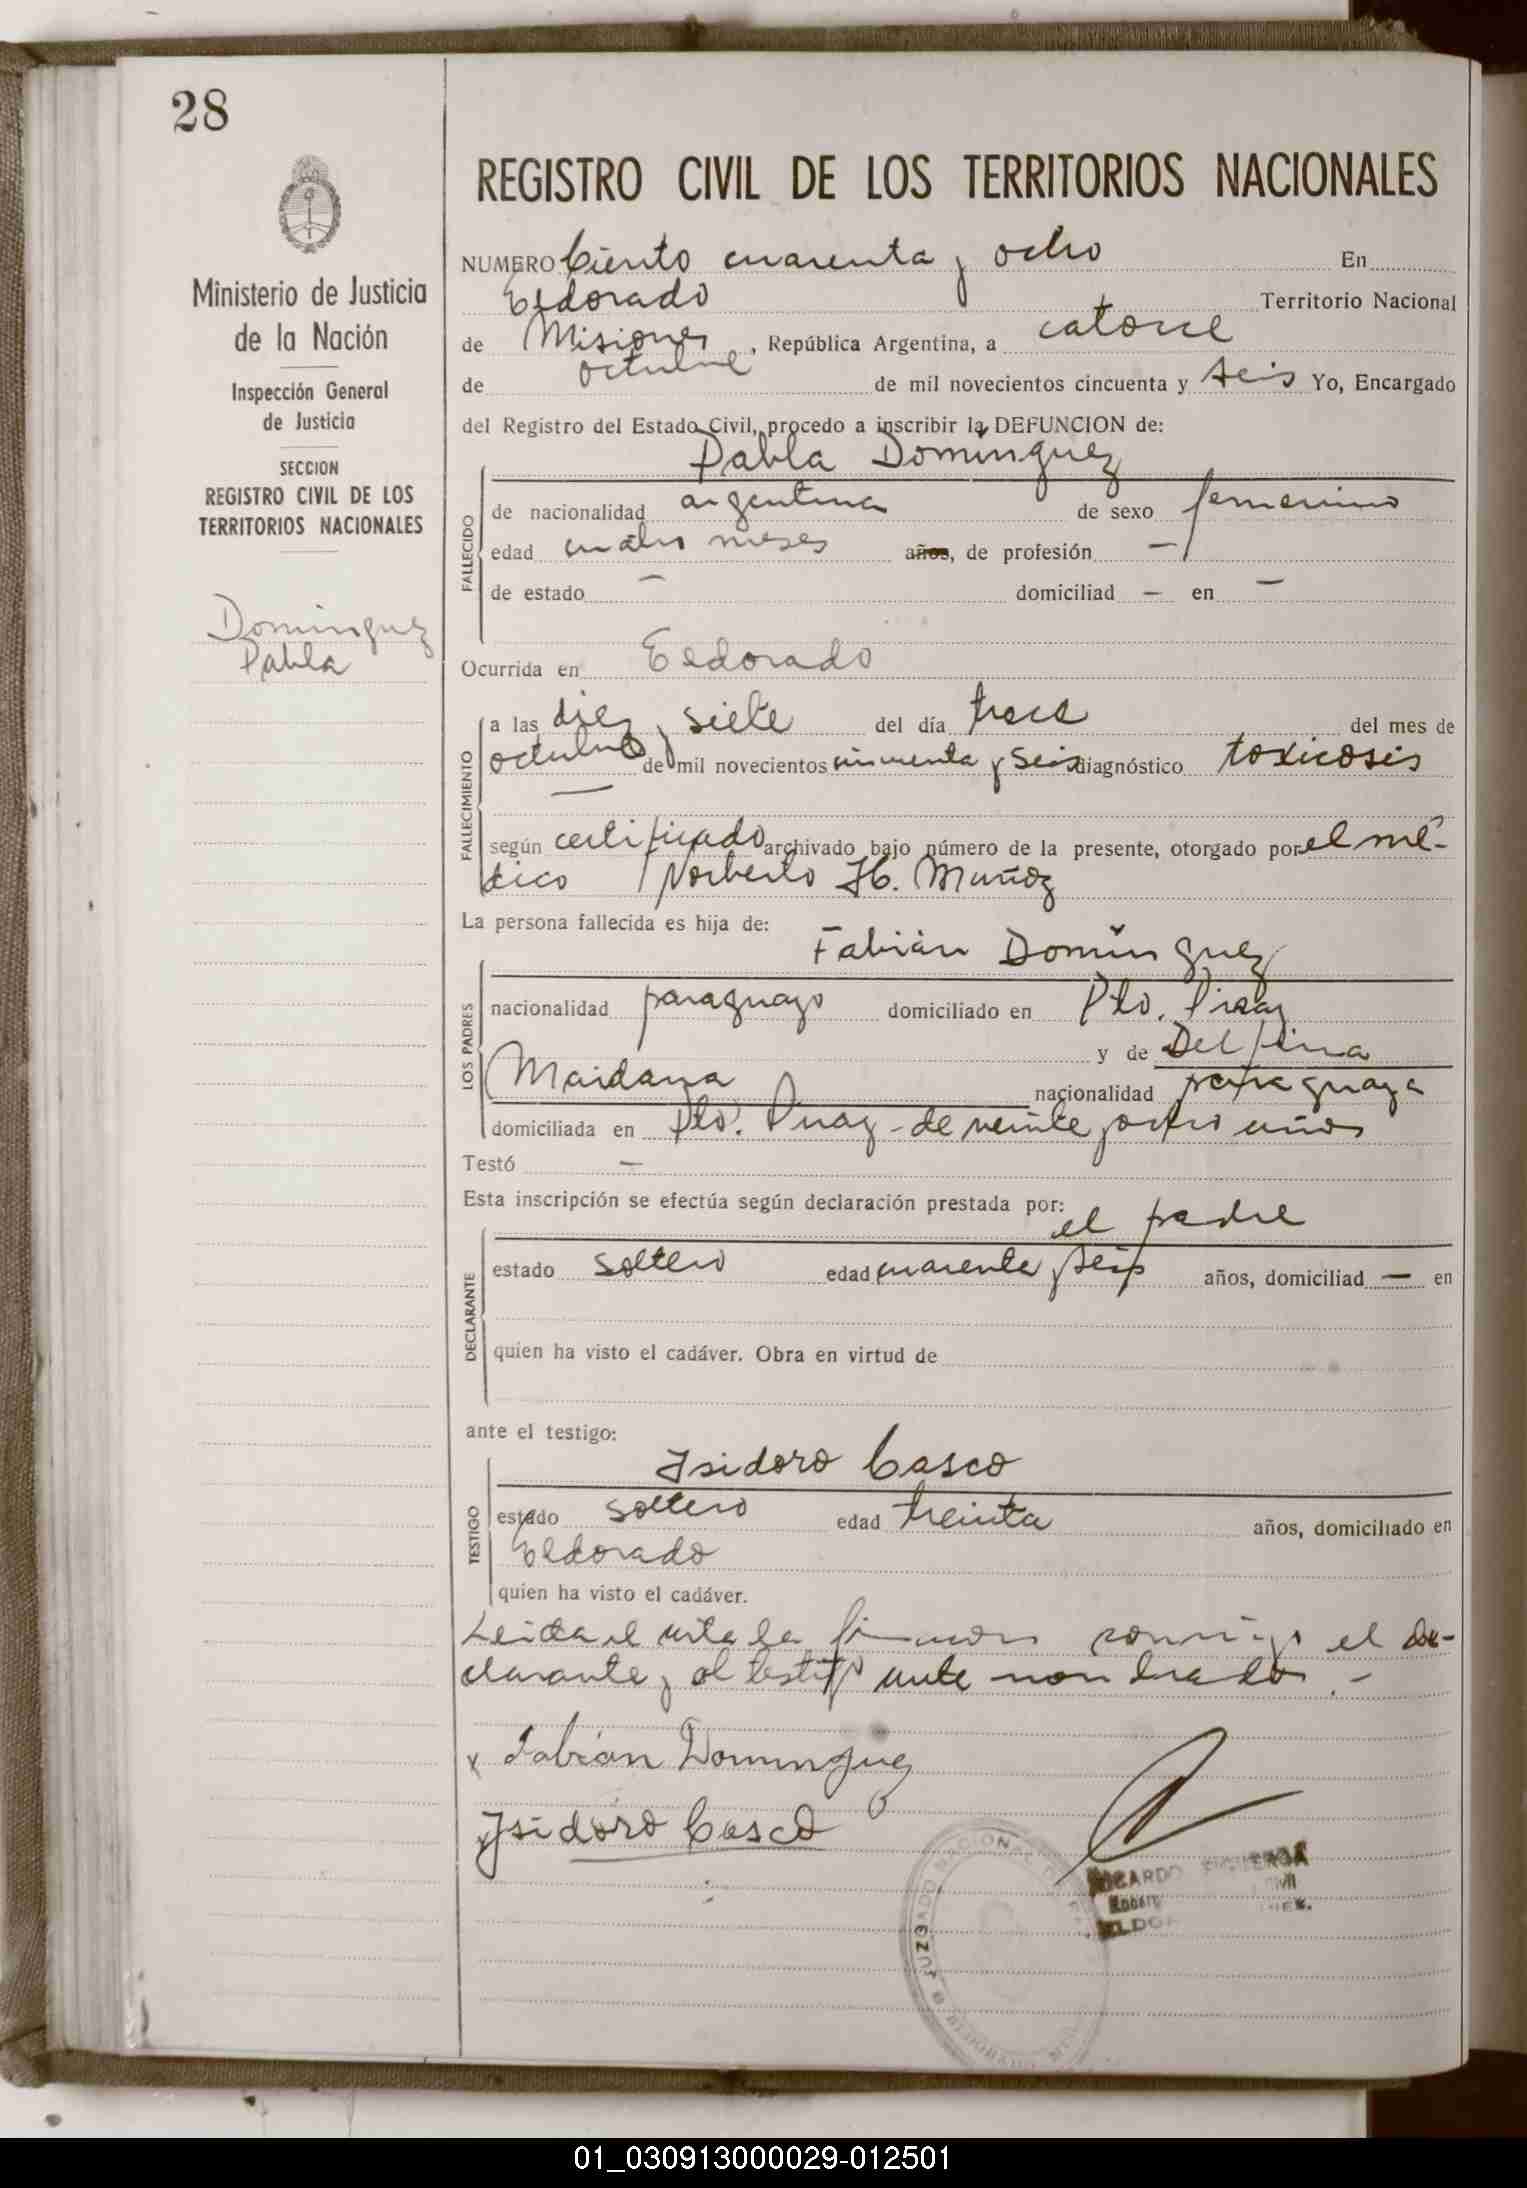 28
REGISTRO CIVIL DE LOS TERRITORIOS NACIONALES
Ministerio de Justicia
de la Nación
Inspección General
de Justicia
SECCION
REGISTRO CIVIL DE LOS
TERRITORIOS NACIONALES
Dominguez
Pabla
NUMERO Ciento cuarenta y ocho En
Eldorado Territorio Nacional
de Misiones, República Argentina, a catorce
de octubre de mil novecientos cincuenta y seis Yo, Encargado
del Registro del Estado Civil, procedo a inscribir la DEFUNCION de:
Pabla Dominguez
FALLECIDO
de nacionalidad argentina de sexo femenino
edad cuatro meses años, de profesión —
de estado — domiciliad — en —
Ocurrida en Eldorado
FALLECIMIENTO
a las diez y siete del día trece del mes de
octubre de mil novecientos cincuenta y seis diagnóstico toxicosis
—
según certificado archivado bajo número de la presente, otorgado por el mé-
dico Norberto H. Muñoz
La persona fallecida es hija de:
Fabián Domínguez
LOS PADRES
nacionalidad paraguayo domiciliado en Pto. Piray
y de Delfina
Maidana nacionalidad paraguaya
domiciliada en Pto. Piray - de veinte y ocho años
Testó —
Esta inscripción se efectúa según declaración prestada por:
el padre
DECLARANTE
estado soltero edad cuarenta y seis años, domiciliad — en
quien ha visto el cadáver. Obra en virtud de
ante el testigo:
Isidoro Casco
TESTIGO
estado soltero edad treinta años, domiciliado en
Eldorado
quien ha visto el cadáver.
Leida el acta la firman conmigo el de-
clarante y el testigo ante nombrados.-
x Fabian Dominguez
x Isidoro Casco
JUZGADO NACIONAL
RICARDO FIGUEROA
01_030913000029-012501